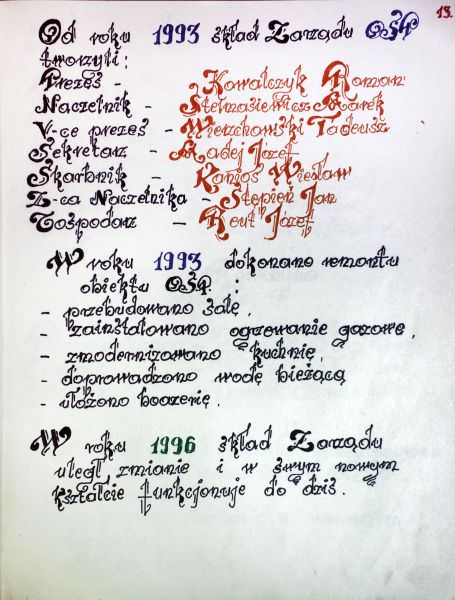 13.
Od roku 1993 skład Zarządu OSP
tworzyli:
Prezes - Kowalczyk Roman
Naczelnik - Stemasiewicz Marek
V-ce prezes - Wierzchowski Tadeusz
Sekretarz - Madej Józef
Skarbnik - Konios Wiesław
Z-ca Naczelnika - Stępień Jan
Gospodarz - Reut Józef
W roku 1993 dokonano remontu
obiektu OSP :
- przebudowano salę,
- zainstalowano ogrzewanie gazowe,
- zmodernizowano kuchnię,
- doprowadzono wodę bieżącą
- ułożono boazerię.
W roku 1996 skład Zarządu
uległ zmianie i w swym nowym
kształcie funkcjonuje do dziś.